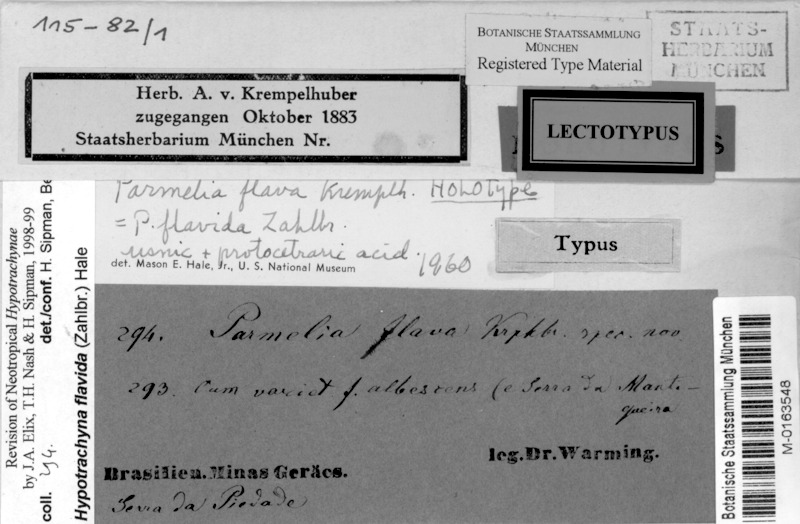 115-82/1
BOTANISCHE STAATSSAMMLUNG
MÜNCHEN
Registered Type Material
STAATS-
HERBARIUM
MÜNCHEN
Herb. A. v. Krempelhuber
zugegangen Oktober 1883
Staatsherbarium München Nr.
LECTOTYPUS
Parmelia flava Kremplh. HOLOTYPE
= P. flavida Zahlbr.
usnic + protocetraric acid.
det. Mason E. Hale, Jr., U. S. National Museum 1960
Typus
294. Parmelia flava Krplhbr. spec. nov.
293. Cum variet f. albescens (e Serra da Mant-
queira
leg. Dr. Warming.
Brasilien. Minas Geräes.
Serra da Piedade
Revision of Neotropical Hypotrachynae
by J.A. Elix, T.H. Nash & H. Sipman, 1998-99
coll. det./conf. H. Sipman, Be
Hypotrachyna flavida (Zahlbr.) Hale
Botanische Staatssammlung München
M-0163548